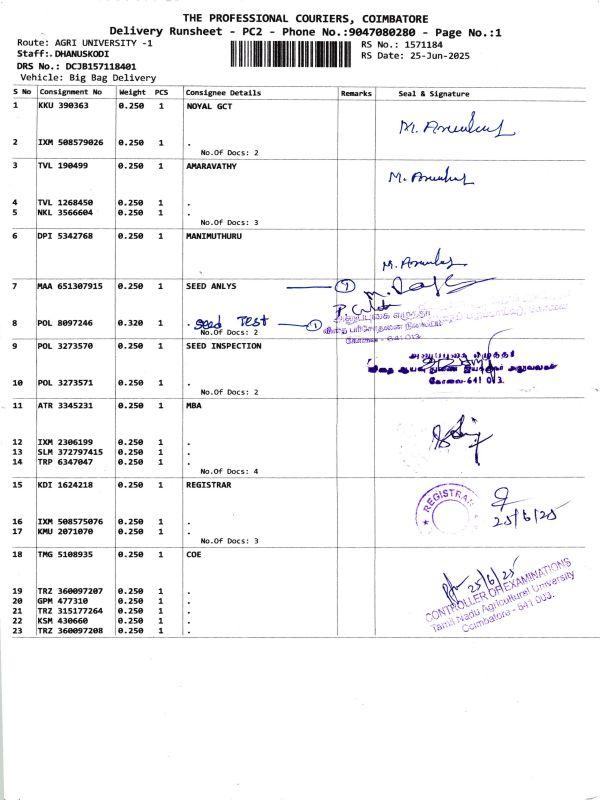 THE PROFESSIONAL COURIERS, COIMBATORE
Delivery Runsheet - PC2 - Phone No.:9047080280 - Page No.:1
Route: AGRI UNIVERSITY -1
RS No.: 1571184
Staff:. DHANUSKODI
RS Date: 25-Jun-2025
DRS No.: DCJB157118401
Vehicle: Big Bag Delivery
S No Consignment No Weight PCS Consignee Details Remarks Seal & Signature
1 KKU 390363 0.250 1 NOYAL GCT
2 IXM 508579026 0.250 1 .
No.Of Docs: 2
3 TVL 190499 0.250 1 AMARAVATHY
4 TVL 1268450 0.250 1 .
5 NKL 3566604 0.250 1 .
No.Of Docs: 3
6 DPI 5342768 0.250 1 MANIMUTHURU
7 MAA 651307915 0.250 1 SEED ANLYS
8 POL 8097246 0.320 1 . Seed Test
No.Of Docs: 2
கோவை - 641 013.
9 POL 3273570 0.250 1 SEED INSPECTION
கோவை-641 013.
10 POL 3273571 0.250 1 .
No.Of Docs: 2
11 ATR 3345231 0.250 1 MBA
12 IXM 2306199 0.250 1 .
13 SLM 372797415 0.250 1 .
14 TRP 6347047 0.250 1 .
No.Of Docs: 4
15 KDI 1624218 0.250 1 REGISTRAR
REGISTRAR
25/6/25
16 IXM 508575076 0.250 1 .
17 KMU 2071070 0.250 1 .
No.Of Docs: 3
18 TMG 5108935 0.250 1 COE
25/6/25
CONTROLLER OF EXAMINATIONS
Tamil Nadu Agricultural University
Coimbatore - 641 003.
19 TRZ 360097207 0.250 1 .
20 GPM 477310 0.250 1 .
21 TRZ 315177264 0.250 1 .
22 KSM 430660 0.250 1 .
23 TRZ 360097208 0.250 1 .